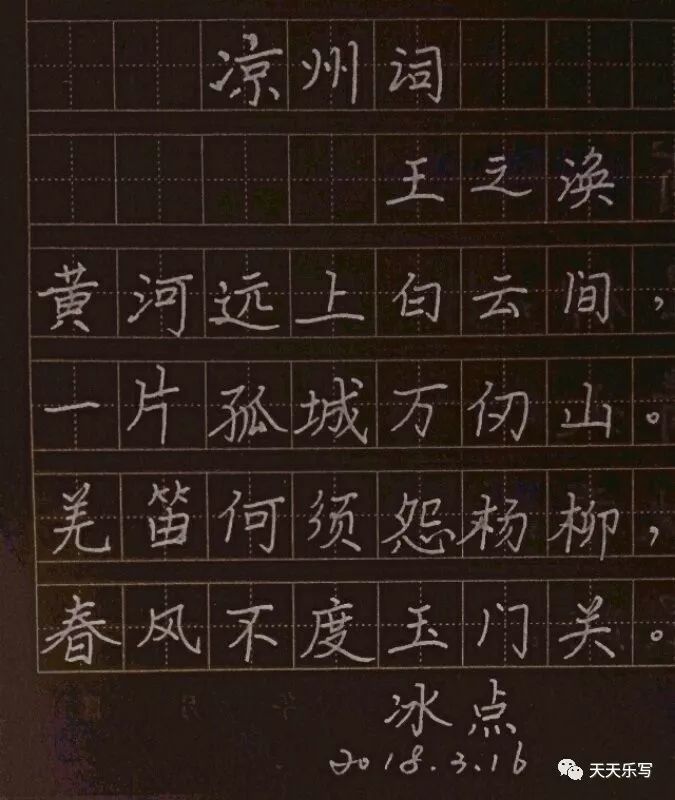 凉州词
王之涣
黄河远上白云间，
一片孤城万仞山。
羌笛何须怨杨柳，
春风不度玉门关。
冰点
2018.3.16
天天乐写